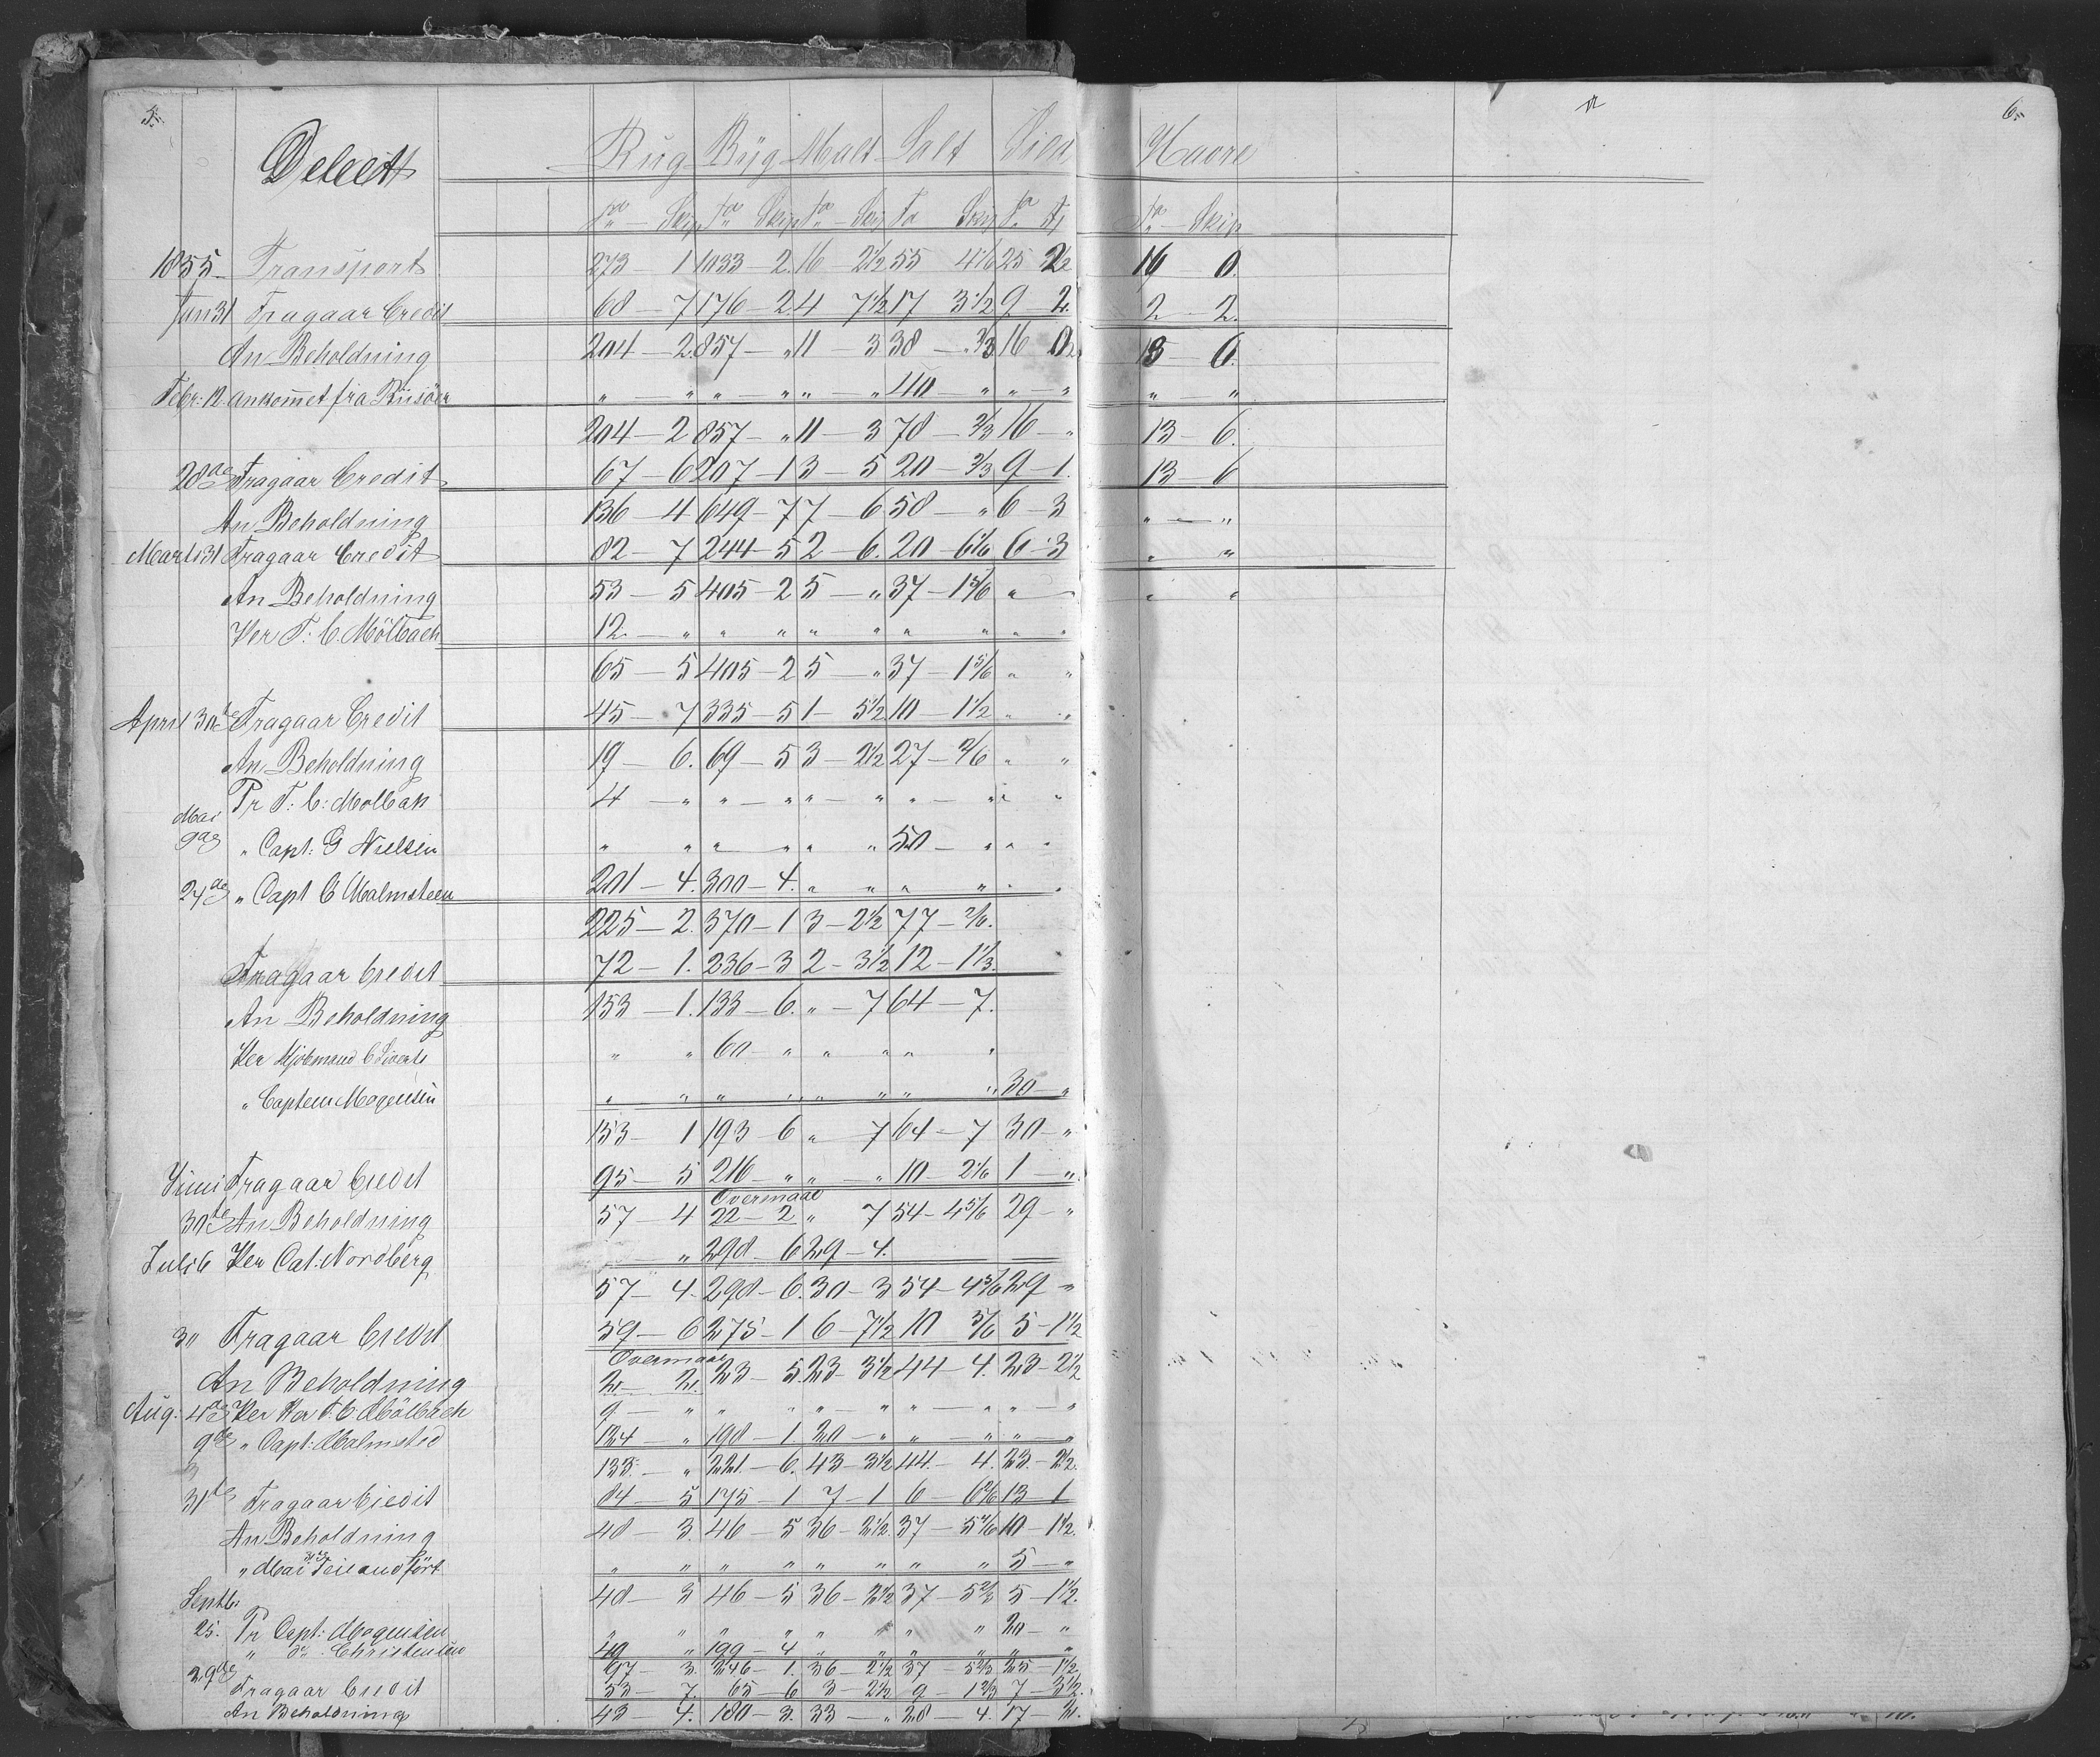 5. 6.
Debet Rug Byg Malt Salt Sild Havre
Tdr — Skip Tdr Skip Tdr — Skip Td Skip Td Fj Tdr — Skip
1855. Transport 273 — 1 1033 — 2 16 — 2 1/2 55 4 1/6 25 2 1/2 16 — 0.
Jan 31 Fragaar Credit 68 — 7 176 — 2 4 7 1/2 17 3 1/2 9 — 2. 2 — 2.
An Beholdning 204 — 2. 857 — " 11 — 3 38 — 2/3 16 0 1/2 13 — 6.
Febr: 12 ankommet fra Riisöer " — " " — " " — " 40 " " — " " — "
204 — 2 857 — " 11 — 3 78 — 2/3 16 — " 13 — 6.
28de Fragaar Credit 67 — 6 207 — 1 3 — 5 20 — 2/3 9 — 1. 13 — 6
An Beholdning 136 — 4 649 — 7 7 — 6 58 — " 6 — 3 " — "
Marts 31 Fragaar Credit 82 — 7 244 — 5 2 — 6. 20 — 6 1/6 6 — 3 " "
An Beholdning 53 — 5 405 — 2 5 — " 37 — 1 5/6 " — " "
Her T: C. Mölbach 12. — " " " " " " " " "
65 — 5 405 — 2 5 — " 37 — 1 5/6 " "
April 30te Fragaar Credit 45 — 7 335 — 5 1 — 5 1/2 10 — 1 1/2 " "
An Beholdning 19 — 6. 69 — 5 3 — 2 1/2 27 — 2/6 " "
Pr T: C: Molbak 4 — " " — " " — " " — " " "
Mai
9de " Capt: G Nielsen " " " — " " " 50 — " " "
24de " Capt C Malmsteen 201 — 4. 300 — 4. " " " " " "
225 — 2. 370 — 1 3 — 2 1/2 77 — 2/6.
Fragaar Credit 72 — 1. 236 — 3 2 — 3 1/2 12 — 1 1/3.
An Beholdning 153 — 1. 133 — 6. " — 7 64 — 7.
Her Kjöbmand C Siverts " " 60 — " " " " "
" Captein Mogensen " " " " " " " " 30 — "
153 — 1 193 — 6 " — 7 64 — 7 30 — "
Juni Fragaar Credit 95 — 5 216 — " " — " 10 — 2 1/6 1 — "
Overmaal
30te An Beholdning 57 — 4 22 — 2 " 7 54 — 4 5/6 29 — "
Juli 6 Her Cat: Nordberg — " 298 — 6 29 — 4.
57 — 4. 298 — 6. 30 — 3 54 — 4 5/6 29 — "
31 Fragaar Credit 59 — 6 275 — 1 6 — 7 1/2 10 5/6 5 — 1 1/2
Overmaal
An Beholdning 2. — 2. 23 — 5. 23 — 3 1/2 44 — 4. 23 — 2 1/2
Aug: 4de Her Her T. C. Mölbach 9 — " " " " — " " — " " — "
9de " Capt: Malmsted 124 — " 198 — 1 20 — " " — " " — "
133. — " 221 — 6. 43 — 3 1/2 44. — 4. 23. — 2 1/2.
31te Fragaar Credit 84 — 5 175 — 1 7 — 1 6 — 6 2/6 13 — 1
An Beholdning 48 — 3. 46 — 5 36 — 2 1/2. 37 — 5 4/6 10 — 1 1/2.
" Mai fört " " " " " " " " 5 — "
48 — 3 46 — 5 36 — 2 1/2 37 — 5 2/3 5 — 1 1/2.
Septb:
25. Pr Capt: Mogensen " " " " " " " " 20 — "
" do Christensen 49 " 199 — 4 " " " " " "
97 — 3. 246 — 1. 36 — 2 1/2 37 — 5 2/3 25 — 1 1/2.
29de Fragaar Credit 53 — 7. 65 — 6 3 — 2 1/2 9 — 1 2/3 7 — 3 1/2.
An Beholdning 43 — 4. 180 — 3. 33 — " 28 — 4. 17 — 2.